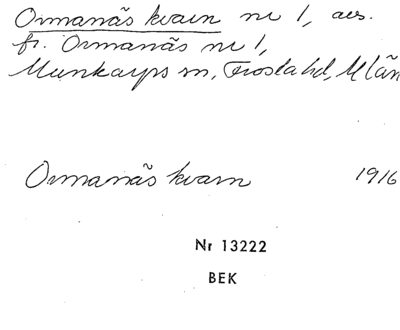 Ormanäs kvarn nr 1, avs.
fr. Ormanäs nr 1,
Munkarps sn, Frosta hd, M län
Ormanäs kvarn 1916
Nr 13222
BEK